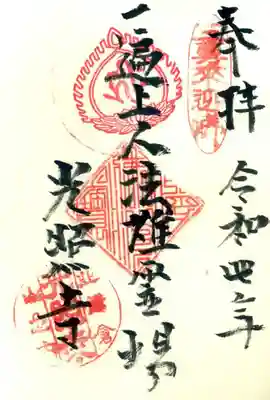 奉拝
令和四年
一遍上人法難霊場
光照寺